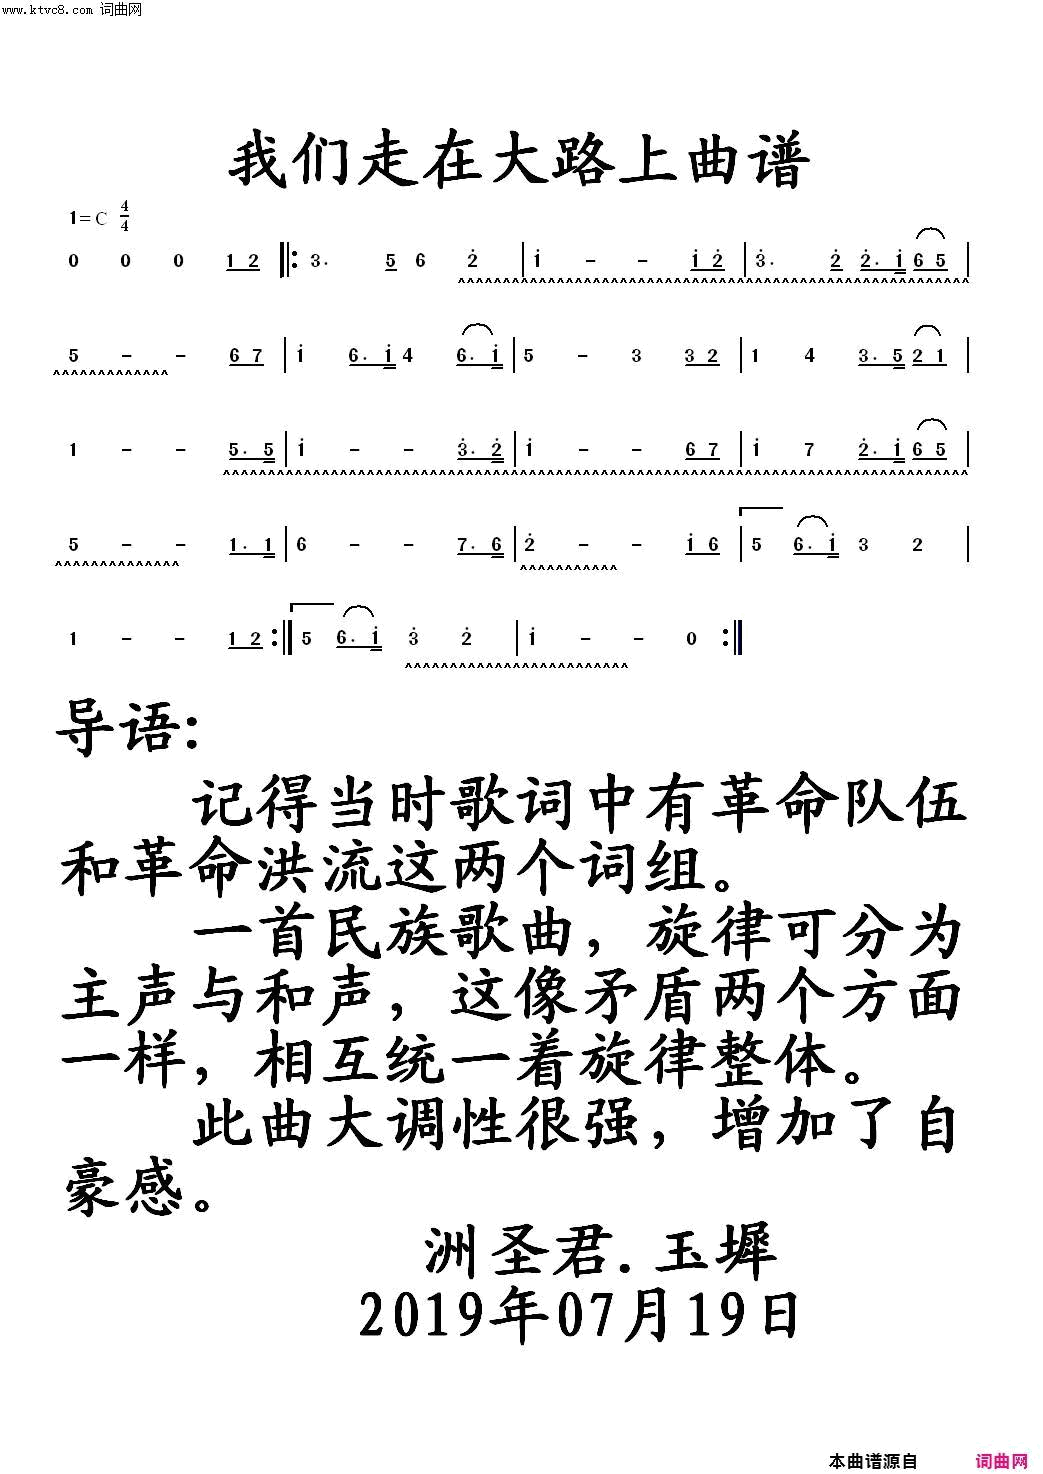 www.ktvc8.com 词曲网
我们走在大路上曲谱
1=C 4/4
0 0 0 1 2 |: 3. 5 6 2̇ | 1̇ - - 1̇ 2̇ | 3̇. 2̇ 2̇. 1̇ 6 5 |
5 - - 6 7 | 1̇ 6. 1̇ 4 6. 1̇ | 5 - 3 3 2 | 1 4 3. 5 2 1 |
1 - - 5. 5 | 1̇ - - 3̇. 2̇ | 1̇ - - 6 7 | 1̇ 7 2̇. 1̇ 6 5 |
5 - - 1. 1 | 6 - - 7. 6 | 2̇ - - 1̇ 6 | 5 6. 1̇ 3 2 |
1 - - 1 2 :| 5 6. 1̇ 3̇ 2̇ | 1̇ - - 0 :|
导语:
记得当时歌词中有革命队伍
和革命洪流这两个词组。
一首民族歌曲，旋律可分为
主声与和声，这像矛盾两个方面
一样，相互统一着旋律整体。
此曲大调性很强，增加了自
豪感。
洲圣君.玉墀
2019年07月19日
本曲谱源自 词曲网